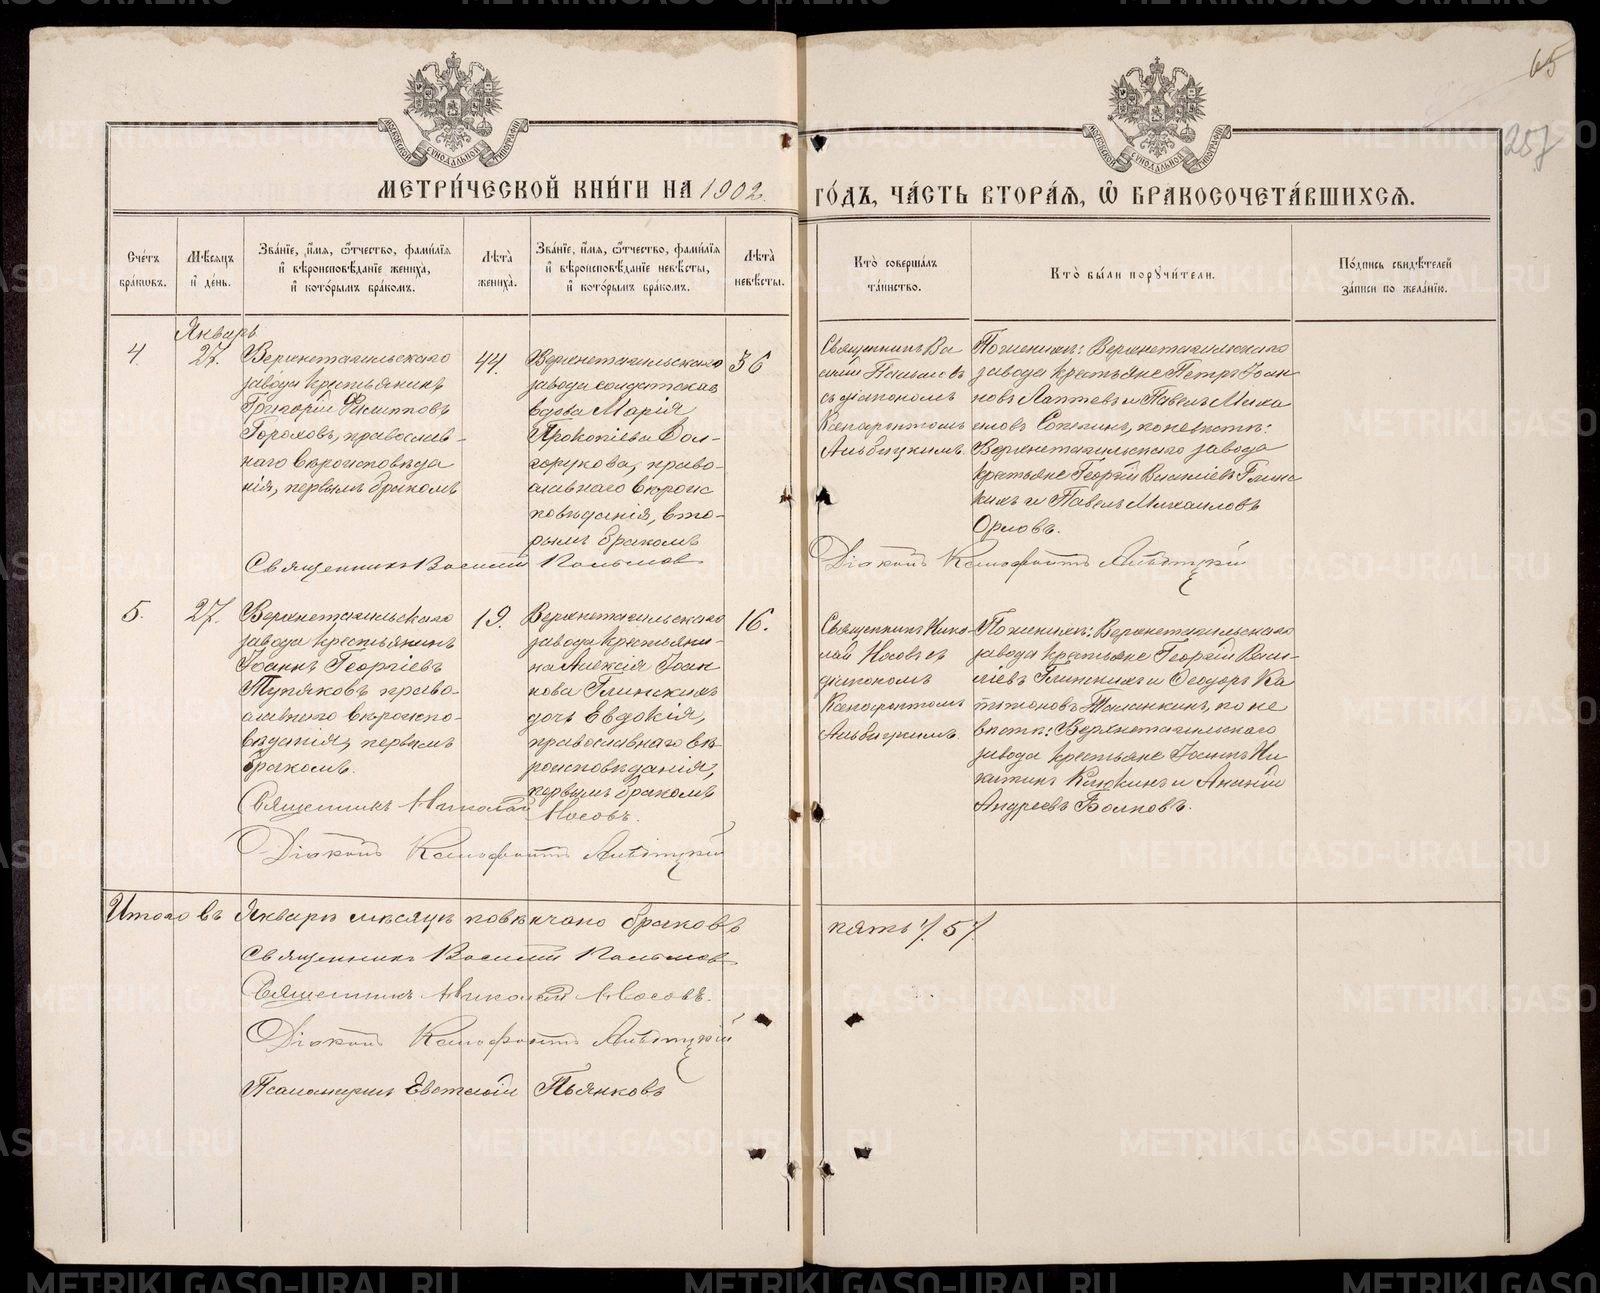 65
257
МОСКОВСКОЙ СУНОДАЛЬНОЙ ТИПОГРАФІИ
МОСКОВСКОЙ СУНОДАЛЬНОЙ ТИПОГРАФІИ
МЕТРИ́ЧЕСКОЙ КНИ́ГИ НА 1902.
ГО́ДЪ, ЧА́СТЬ ВТОРА́Ѧ, Ѽ БРАКОСОЧЕТА́ВШИХСѦ.
Сче́тъ бра́ковъ.
Мѣ́сѧцъ и҆ де́нь.
Зва́нїе, и҆́мѧ, ѻ҆́тчество, фами́лїѧ
и҆ вѣроисповѣ́данїе жениха̀,
и҆ кото́рымъ бра́комъ.
Лѣ́та жениха̀.
Зва́нїе, и҆́мѧ, ѻ҆́тчество, фами́лїѧ
и҆ вѣроисповѣ́данїе невѣ́сты,
и҆ кото́рымъ бра́комъ.
Лѣ́та невѣ́сты.
Кто̀ соверша́лъ
та́инство.
Кто̀ бы́ли порꙋчи́тели.
По́дпись свидѣ́телей
за́писи по жела́нїю.
Январь
4.
27.
Верхнетагильскаго
завода крестьянинъ
Григорій Филипповъ
Гороховъ, православ-
наго вѣроисповѣда
нія, первымъ бракомъ
44.
Верхнетагильскаго
завода солдатская
вдова Марія
Прокопіева Дол-
горукова, право-
славнаго вѣроис
повѣданія, вто-
рымъ бракомъ
36
Священникъ Ва
силій Пальмовъ
съ діакономъ
Ксенофонтомъ
Альбицкимъ.
По женихѣ: Верхнетагильскаго
завода крестьяне Петръ Іоан
новъ Лаптевъ и Павелъ Миха
иловъ Сопегинъ, по невѣстѣ:
Верхнетагильскаго завода
крестьяне Георгій Василіевъ Глинс
кихъ и Павелъ Михаиловъ
Орловъ.
Священникъ Василій Пальмовъ
Діаконъ Ксенофонтъ Альбицкій
5.
27.
Верхнетагильскаго
завода крестьянинъ
Іоаннъ Георгіевъ
Тупяковъ право-
славнаго вѣроиспо-
вѣданія, первымъ
бракомъ.
19.
Верхнетагильскаго
завода крестьяни-
на Алексія Іоан
нова Глинскихъ
дочь Евдокія,
православнаго вѣ-
роисповѣданія,
первымъ бракомъ
16.
Священникъ Нико-
лай Носовъ съ
діакономъ
Ксенофонтомъ
Альбицкимъ.
По женихѣ: Верхнетагильскаго
завода крестьяне Георгій Васи-
ліевъ Глинскихъ и Ѳеодоръ Ка
питоновъ, по не
вѣстѣ: Верхнетагильскаго
завода крестьяне Іоаннъ Ни
китинъ Клюкинъ и Ананій
Андреевъ Волковъ.
Священникъ Николай Носовъ.
Діаконъ Ксенофонтъ Альбицкій
Итого въ Январѣ мѣсяцѣ повѣнчано браковъ пять /. 5 /.
Священникъ Василій Пальмовъ
Священникъ Николай Носовъ.
Діаконъ Ксенофонтъ Альбицкій
Псаломщикъ Евстафій Пьянковъ
METRIKI.GASO-URAL.RU